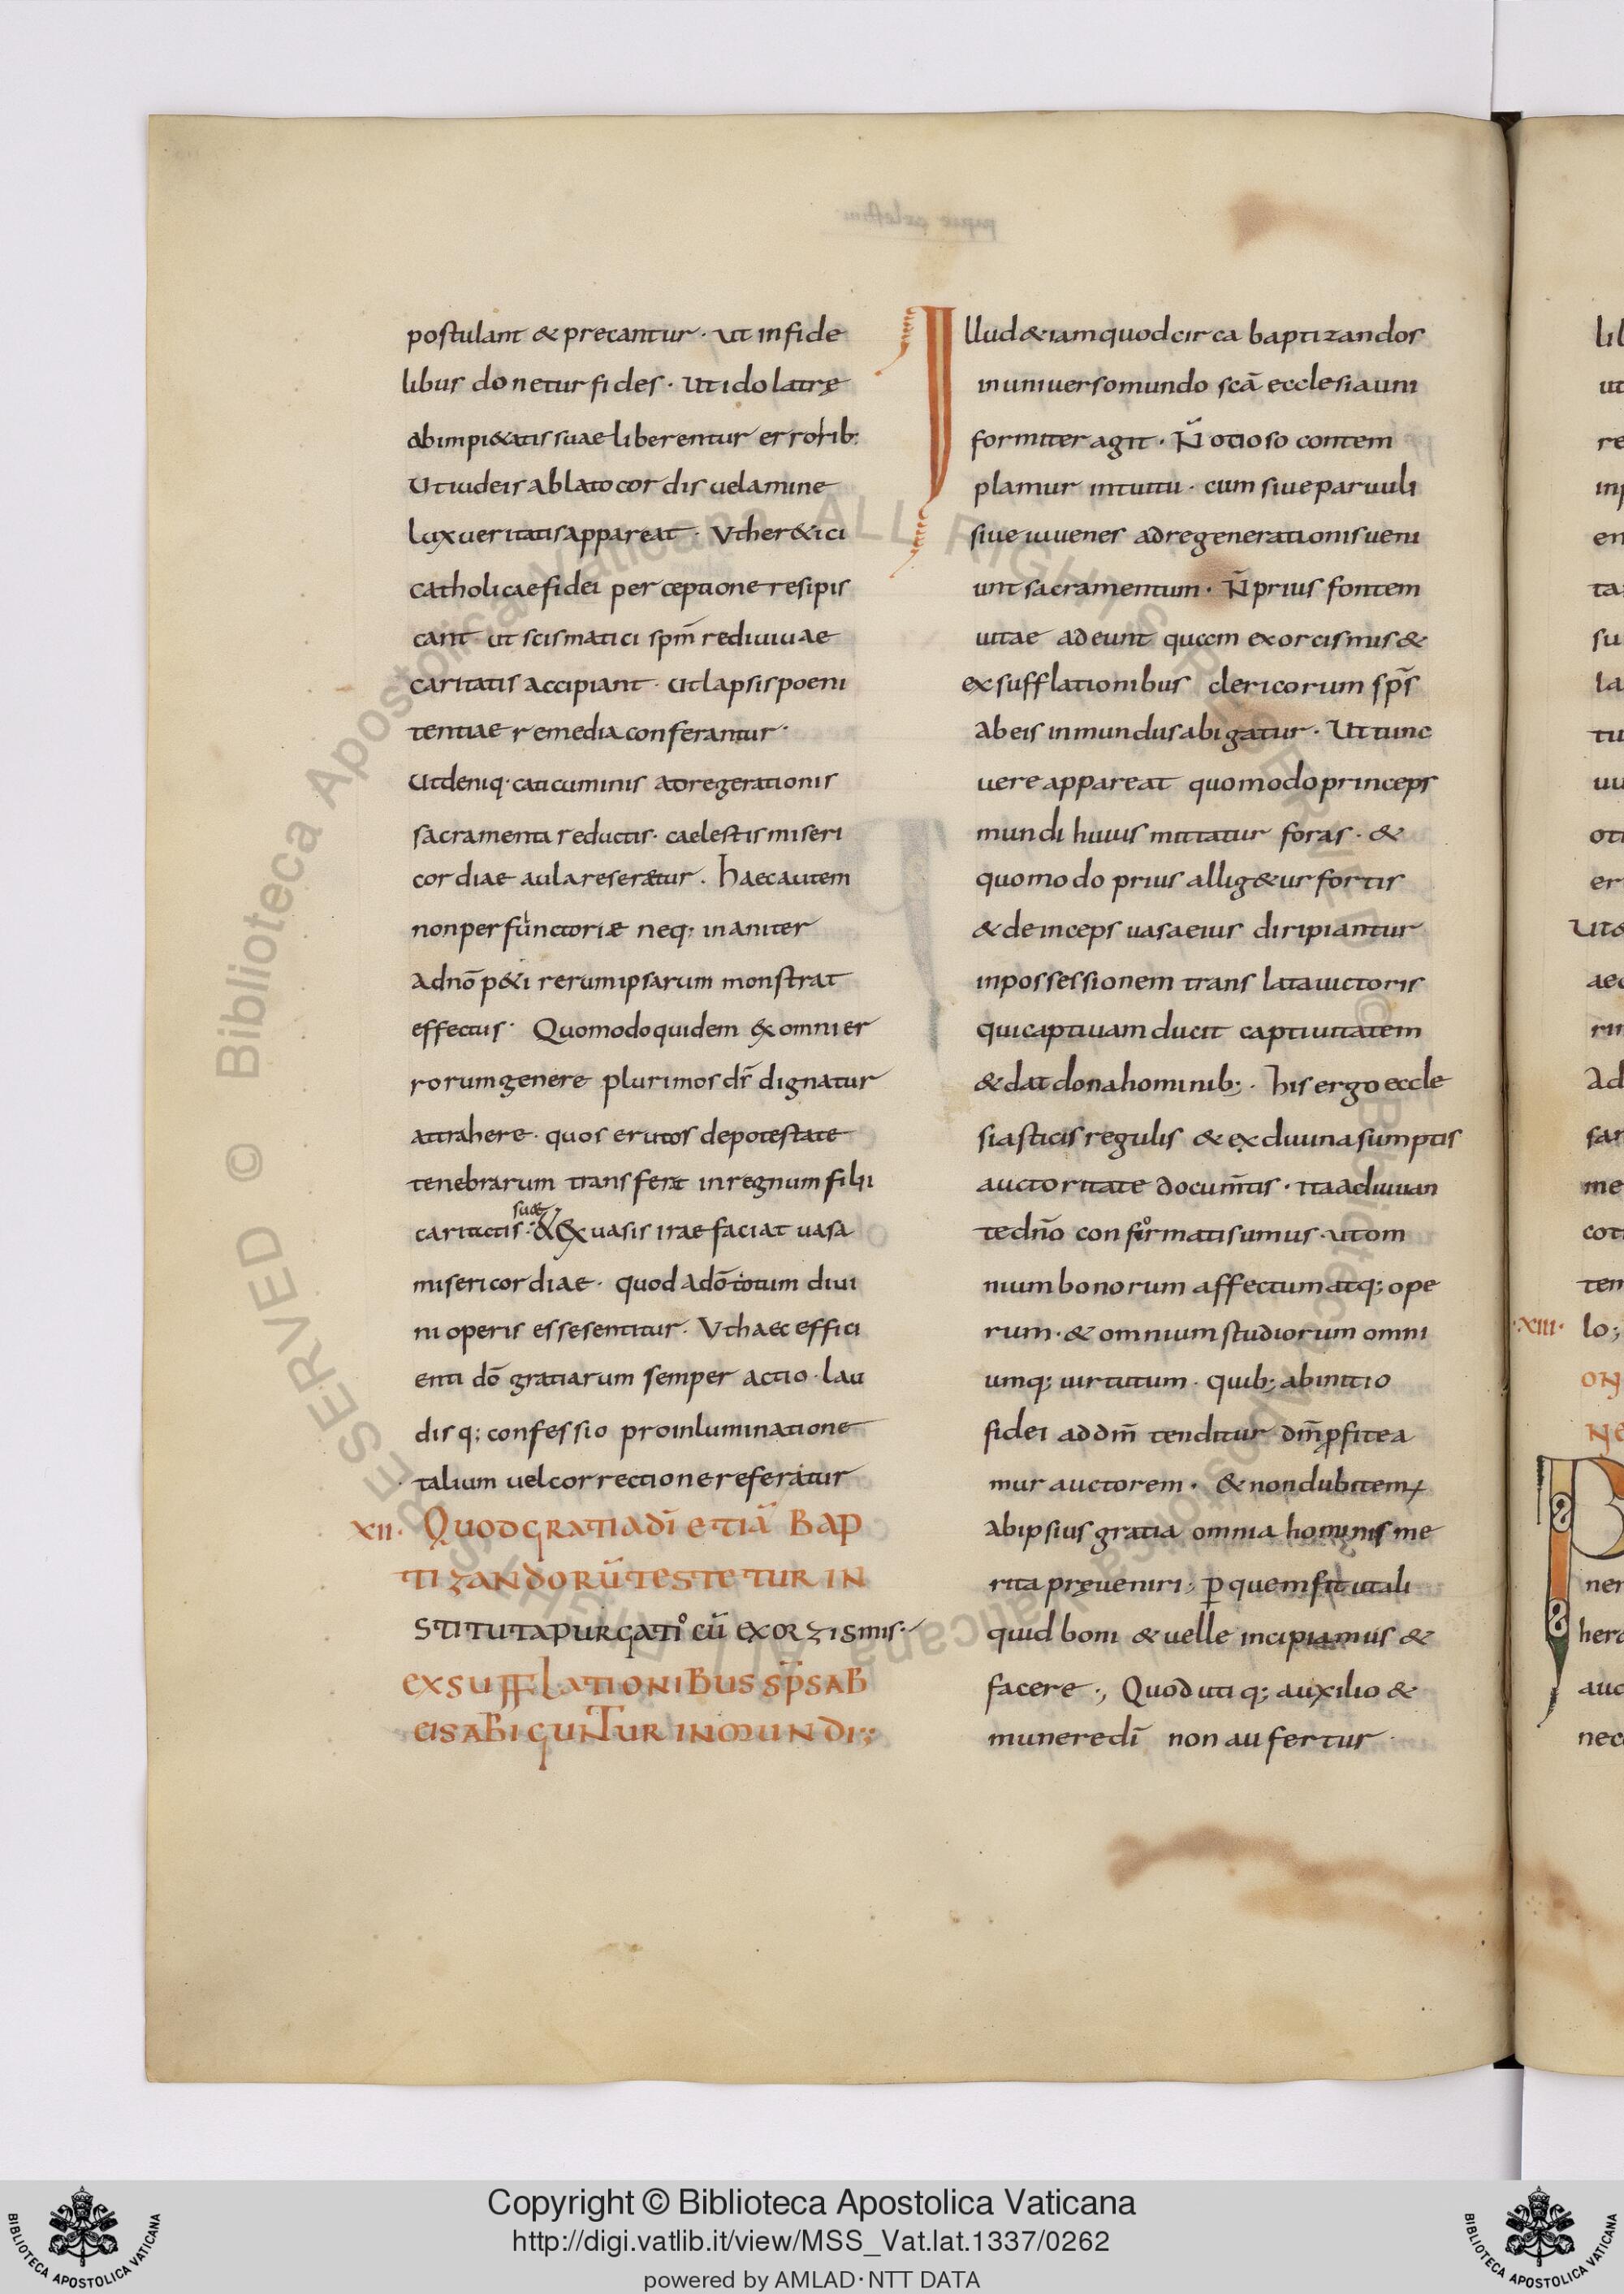 postulant & precantur · ut infide
libus donetur fides · ut idolatrę
abimpi&atis suae liberentur errorib:
Utiudeis ablato cordis uelamine
lux ueritatis appareat · Uther&ici
catholicae fidei perceptione resipis
cant · ut scismatici spm̄ rediuiuae
caritatis accipiant · ut lapsis poeni
tentiae remedia conferantur ·
Utdeniq· caticuminis adregerationis
sacramenta reductis · caelestis miseri
cordiae aula reseretur · haec autem
non perfunctoriae neq; inaniter
adnō p&i rerum ipsarum monstrat
effectus · Quomodo quidem ex omni er
rorum genere plurimos dr̄ dignatur
attrahere · quos erutos depotestate
tenebrarum transferat inregnum filii
suae
caritatis · & Ex uasis irae faciat uasa
misericordiae · quod adō totum diui
ni operis esse sentitur · Ut haec effici
enti dō gratiarum semper actio · lau
disq; confessio proinluminatione
talium uel correctione referatur
XII· Quod gratiadī etiā bap
tizandorū testetur in
stituta purgatio cū exorzismis ·
exsufflationibus sp̄s ab
eis abiguntur inmundi;
Illud&iam quod circa baptizandos
in uniuerso mundo scā ecclesia uni
formiter agit · N̄ otioso contem
plamur intuitu · cum siue paruuli
siue iuuenes adregenerationis ueni
unt sacramentum · N̄ prius fontem
uitae adeunt quam exorcismis &
exsufflationibus clericorum sp̄s
ab eis inmundus abigatur · Ut tunc
uere appareat quomodo princeps
mundi huius mittatur foras · &
quomodo prius allig&ur fortis
& deinceps uasa eius diripiantur
inpossessionem translata uictoris
qui captiuam ducit captiuitatem
& dat dona hominib; · his ergo eccle
siasticis regulis & ex diuina sumptis
auctoritate documtis · ita adiuuan
te dn̄o confirmati sumus · ut om
nium bonorum affectum atq; ope
rum · & omnium studiorum omni
umq; uirtutum · quib; abinitio
fidei addm̄ tenditur dm̄ pfitea
mur auctorem · & non dubitem
abipsius gratia omnia hominis me
rita pręueniri; p quem fit ut ali
quid boni & uelle incipiamus &
facere ·, Quod utiq; auxilio &
munere dī non aufertur
·XIII·
Copyright © Biblioteca Apostolica Vaticana
http://digi.vatlib.it/view/MSS_Vat.lat.1337/0262
powered by AMLAD·NTT DATA
BIBLIOTECA APOSTOLICA VATICANA
BIBLIOTECA APOSTOLICA VATICANA